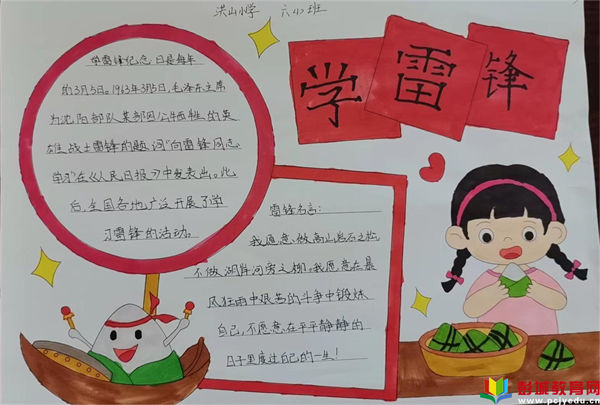 洪山小学 六(4)班
学雷锋
学雷锋纪念日是每年
的3月5日。1963年3月5日,毛泽东主席
为沈阳部队某部因公牺牲的英
雄战士雷锋的题词"向雷锋同志
学习"在《人民日报》中发表出。此
后,全国各地广泛开展了学
习雷锋的活动。
雷锋名言:
我愿意做高山岩石之松
不做湖岸河旁之柳。我愿意在暴
风狂雨中艰苦的斗争中锻炼
自己,不愿意在平平静静的
日子里度过自己的一生!
彭城教育网
www.pcjyedu.cn